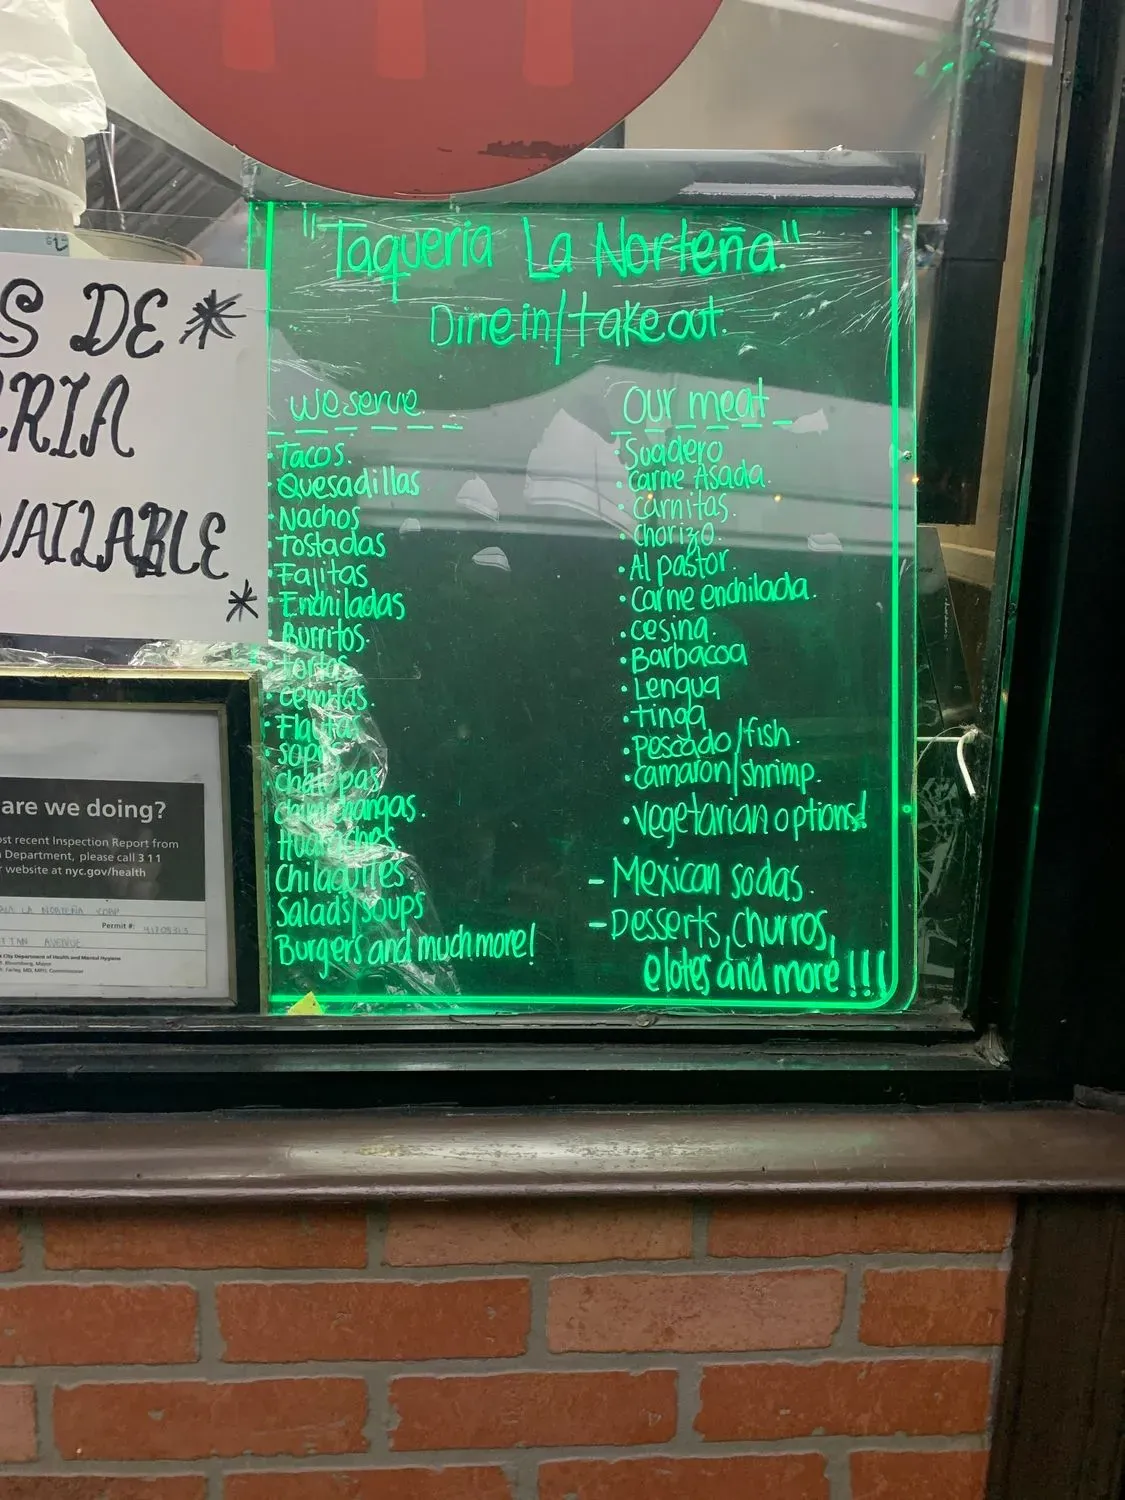 "Taqueria La Norteña."
Dine in/take out.
We serve.
• Tacos.
• Quesadillas
• Nachos
• Tostadas
• Fajitas
• Enchiladas
• Burritos.
• tortas
• cemitas.
• Flautas
• sopes
chalupas
chimichangas.
Huaraches.
Chilaquiles.
Salads/soups
Burgers and much more!
our meat
• Suadero
• carne Asada.
• carnitas.
• chorizo.
• Al pastor.
• carne enchilada.
• cesina.
• Barbacoa
• Lengua
• tinga
• Pescado/fish.
• camaron/shrimp.
• vegetarian options!
- Mexican sodas.
- Desserts, churros,
elotes and more!!!
S DE *
RIA
AVAILABLE
*
are we doing?
ost recent Inspection Report from
Department, please call 311
website at nyc.gov/health
LA NORTEÑA CORP
Permit #:
TTAN AVENUE
City Department of Health and Mental Hygiene
Bloomberg, Mayor
Farley, MD, MPH, Commissioner